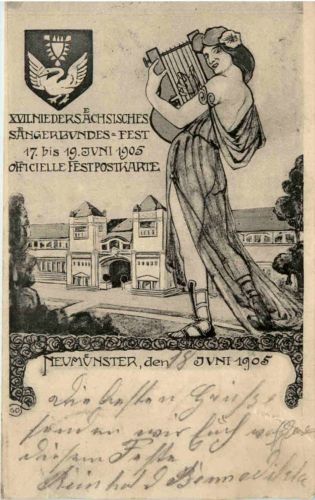 XVII. NIEDERSÆCHSISCHES
SÄNGERBUNDES=FEST
17. bis 19. JUNI 1905
OFFICIELLE FESTPOSTKARTE
NEUMÜNSTER, den 18 JUNI 1905
Die besten Grüße
senden wir Euch von
diesem Feste
Reinhold